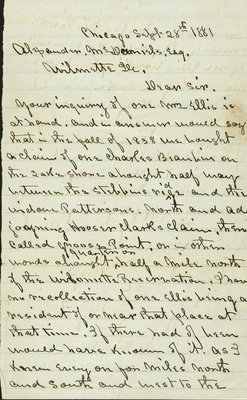 Chicago Sept. 28th 1881
Alexander McDaniels, Esq.
Wilmette Ill.
Dear Sir.
Your inquiry of one Mr Ellis is
at hand. and in answer would say
that in the fall of 1838 we bought
a claim of one Charles Beaubien on
the Lake shore about half way
between the Stebbins ridge and the
widow Pattersons. North and ad
joining Hooser Clarks Claim, then
called Grosse Point, or in other
words about half a mile north
of the Wilmette Reservation. I have
no recollection of one Ellis being a
resident of or near that place at
that time. If there had of been
would have known of it. as I
knew every one for miles North
and South and west to the